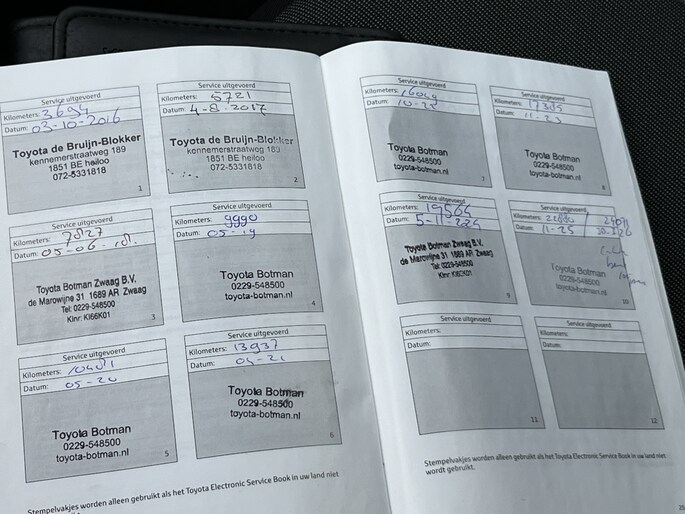 Service uitgevoerd
Kilometers: 3694
Datum: 03-10-2016
Toyota de Bruijn-Blokker
kennemerstraatweg 189
1851 BE heiloo
072-5331818
1
Service uitgevoerd
Kilometers: 5721
Datum: 4-8-2017
Toyota de Bruijn-Blokker
kennemerstraatweg 189
1851 BE heiloo
072-5331818
2
Service uitgevoerd
Kilometers: 7827
Datum: 05-06-18.
Toyota Botman Zwaag B.V.
de Marowijne 31 1689 AR Zwaag
Tel: 0229-548500
Klnr: KI66K01
3
Service uitgevoerd
Kilometers: 9990
Datum: 05-19
Toyota Botman
0229-548500
toyota-botman.nl
4
Service uitgevoerd
Kilometers:
Datum: 05-20
Toyota Botman
0229-548500
toyota-botman.nl
5
Service uitgevoerd
Kilometers: 13937
Datum:
Toyota Botman
0229-548500
toyota-botman.nl
6
Stempelvakjes worden alleen gebruikt als het Toyota Electronic Service Book in uw land niet
Service uitgevoerd
Kilometers:
Datum:
Toyota Botman
0229-548500
toyota-botman.nl
7
Service uitgevoerd
Kilometers: 17385
Datum: 11-23
Toyota Botman
0229-548500
toyota-botman.nl
8
Service uitgevoerd
Kilometers: 19564
Datum:
Toyota Botman Zwaag B.V.
de Marowijne 31 1689 AR Zwaag
Tel: 0229-548500
9
Service uitgevoerd
Kilometers:
Datum: 11-25
Toyota Botman
0229-548500
toyota-botman.nl
10
Service uitgevoerd
Kilometers:
Datum:
11
Service uitgevoerd
Kilometers:
Datum:
12
Stempelvakjes worden alleen gebruikt als het Toyota Electronic Service Book in uw land niet
wordt gebruikt.